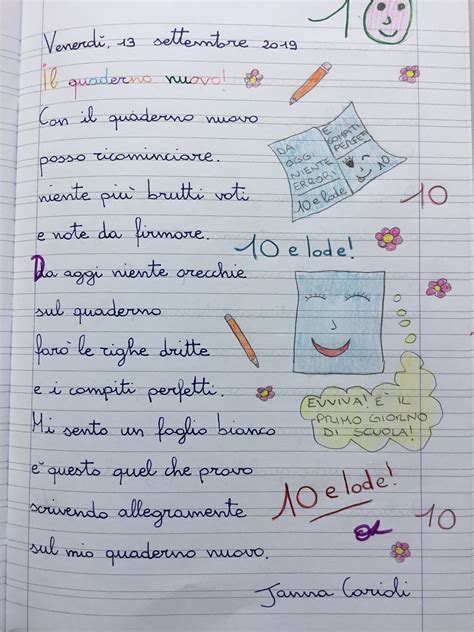 10
Venerdì, 13 settembre 2019
Il quaderno nuovo!
Con il quaderno nuovo
posso ricominciare.
niente più brutti voti
e note da firmare.
DA
OGGI
NIENTE
ERRORI!
10 e lode
E
COMPITI
PERFETTI
10
10
10 e lode!
Da oggi niente orecchie
sul quaderno
farò le righe dritte
e i compiti perfetti.
EVVIVA! E' IL
PRIMO GIORNO
DI SCUOLA!
Mi sento un foglio bianco
è questo quel che provo
scrivendo allegramente
sul mio quaderno nuovo.
10 e lode!
10
Janna Carioli